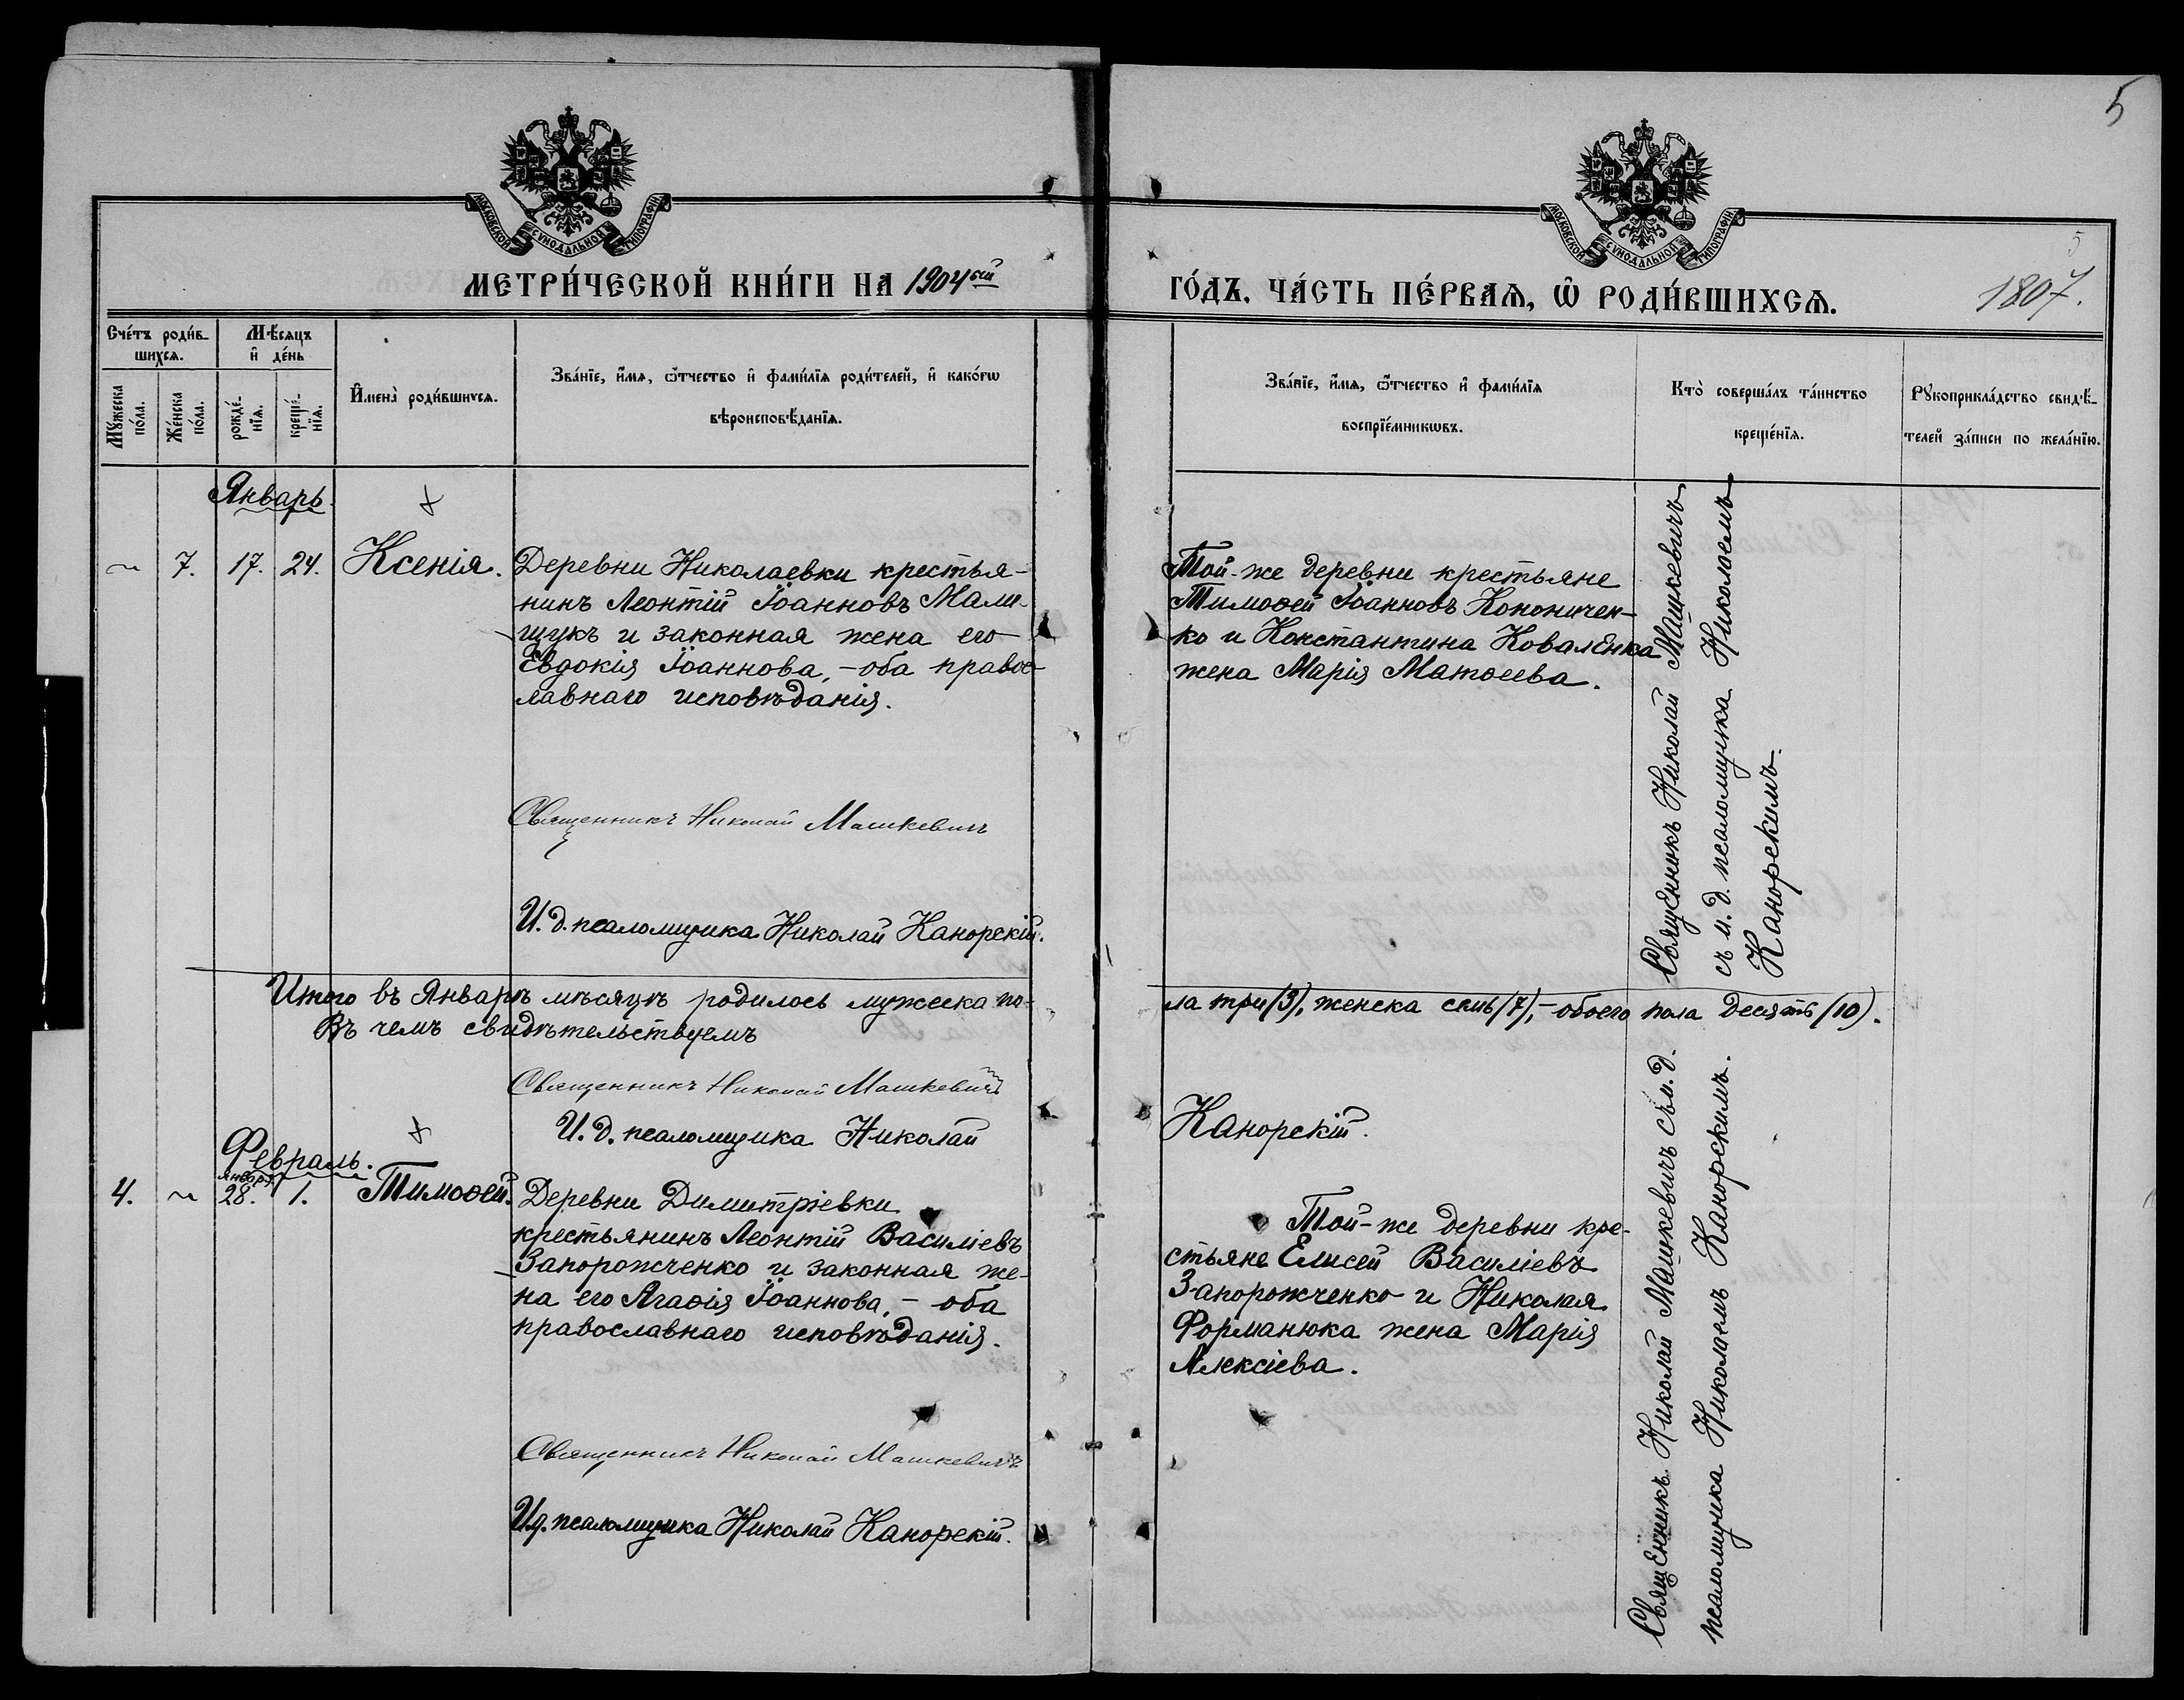 5
МОСКОВСКОЙ СѴНОДАЛЬНОЙ ТИПОГРАФІИ
МОСКОВСКОЙ СѴНОДАЛЬНОЙ ТИПОГРАФІИ
МЕТРИ́ЧЕСКОЙ КНИ́ГИ НА 1904ый
ГО́ДЪ. ЧА́СТЬ ПЕ́РВАѦ, Ѡ҆ РОДИ́ВШИХСѦ.
5
1807.
Сче́тъ роди́в-
шихсѧ.
Мѣ́сѧцъ
и҆ де́нь
Мꙋ́жеска
по́ла.
Же́нска
по́ла.
рожде́-
нїѧ.
креще́-
нїѧ.
И҆мена̀ роди́вшихсѧ.
Зва́нїе, и҆́мѧ, ѻ҆́тчество и҆ фами́лїѧ роди́телей, и҆ како́гѡ
вѣроисповѣ́данїѧ.
Зва́нїе, и҆́мѧ, ѻ҆́тчество и҆ фами́лїѧ
воспрїе́мникѡвъ.
Кто̀ соверша́лъ та́инство
креще́нїѧ.
Рꙋкоприкла́дство свидѣ́-
телей за́писи по жела́нїю.
Январь.
7. 17. 24. Ксенія.
Деревни Николаевки крестья-
нинъ Леонтій Іоанновъ Мали-
щукъ и законная жена его
Евдокія Іоаннова, - оба правос-
лавнаго исповѣданія.
Священникъ Николай Машкевичъ
И. д. псаломщика Николай Канорскій.
Той-же деревни крестьяне
Тимоѳей Іоанновъ Кононичен-
ко и Константина Коваленка
жена Марія Матѳеева.
Священникъ Николай Машкевичъ
съ и. д. псаломщика Николаемъ
Канорскимъ.
Итого въ Январѣ мѣсяцѣ родилось мужеска по-
ла три (3), женска семь (7), - обоего пола десять (10).
Въ чемъ свидѣтельствуемъ
Священникъ Николай Машкевичъ
И. д. псаломщика Николай
Канорскій.
Февраль.
Января
4. 28. 1. Тимоѳей.
Деревни Димитріевки
крестьянинъ Леонтій Василіевъ
Запорожченко и законная же-
на его Агаѳія Іоаннова, - оба
православнаго исповѣданія.
Священникъ Николай Машкевичъ
И.д. псаломщика Николай Канорскій.
Той-же деревни кре-
стьяне Елисей Василіевъ
Запорожченко и Николая
Форманюка жена Марія
Алексіева.
Священникъ Николай Машкевичъ съ и. д.
псаломщика Николаемъ Канорскимъ.